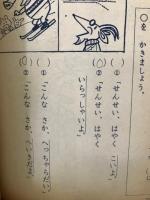 ○を かきましょう。
( ) ①「せんせい、はやく こいよ」
(○) ②「せんせい、はやく
いらっしゃいよ」
( ) ①「こんな さか、へっちゃらだい」
(○) ②「こんな さか、